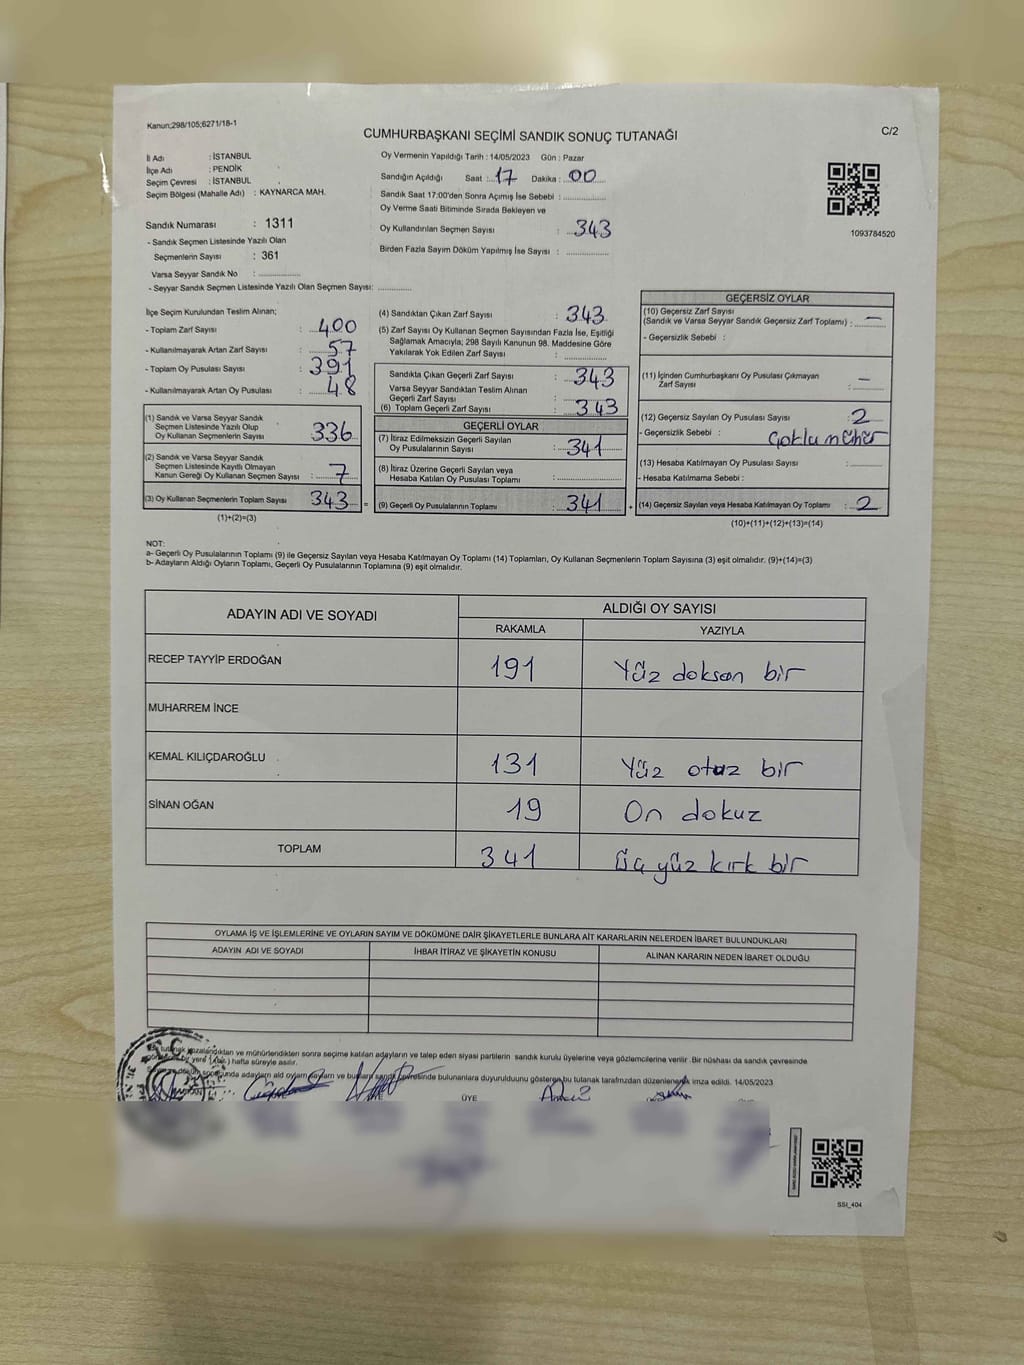 Kanun;298/105;6271/18-1
CUMHURBAŞKANI SEÇİMİ SANDIK SONUÇ TUTANAĞI
C/2
İl Adı : İSTANBUL
İlçe Adı : PENDİK
Seçim Çevresi : İSTANBUL
Seçim Bölgesi (Mahalle Adı) : KAYNARCA MAH.
Sandık Numarası : 1311
- Sandık Seçmen Listesinde Yazılı Olan
Seçmenlerin Sayısı : 361
Varsa Seyyar Sandık No :
- Seyyar Sandık Seçmen Listesinde Yazılı Olan Seçmen Sayısı:
Oy Vermenin Yapıldığı Tarih : 14/05/2023 Gün : Pazar
Sandığın Açıldığı Saat : 17 Dakika : 00
Sandık Saat 17.00'den Sonra Açımış İse Sebebi :
Oy Verme Saati Bitiminde Sırada Bekleyen ve
Oy Kullandırılan Seçmen Sayısı : 343
Birden Fazla Sayım Döküm Yapılmış İse Sayısı :
1093784520
İlçe Seçim Kurulundan Teslim Alınan;
- Toplam Zarf Sayısı : 400
- Kullanılmayarak Artan Zarf Sayısı : 57
- Toplam Oy Pusulası Sayısı : 391
- Kullanılmayarak Artan Oy Pusulası : 48
(1) Sandık ve Varsa Seyyar Sandık
Seçmen Listesinde Yazılı Olup
Oy Kullanan Seçmenlerin Sayısı 336
(2) Sandık ve Varsa Seyyar Sandık
Seçmen Listesinde Kayıtlı Olmayan
Kanun Gereği Oy Kullanan Seçmen Sayısı : 7
(3) Oy Kullanan Seçmenlerin Toplam Sayısı 343 =
(1)+(2)=(3)
(4) Sandıktan Çıkan Zarf Sayısı : 343
(5) Zarf Sayısı Oy Kullanan Seçmen Sayısından Fazla İse, Eşitliği
Sağlamak Amacıyla; 298 Sayılı Kanunun 98. Maddesine Göre
Yakılarak Yok Edilen Zarf Sayısı :
Sandıkta Çıkan Geçerli Zarf Sayısı : 343
Varsa Seyyar Sandıktan Teslim Alınan
Geçerli Zarf Sayısı :
(6) Toplam Geçerli Zarf Sayısı : 343
GEÇERLİ OYLAR
(7) İtiraz Edilmeksizin Geçerli Sayılan
Oy Pusulalarının Sayısı : 341
(8) İtiraz Üzerine Geçerli Sayılan veya
Hesaba Katılan Oy Pusulası Toplamı :
(9) Geçerli Oy Pusulalarının Toplamı : 341 +
GEÇERSİZ OYLAR
(10) Geçersiz Zarf Sayısı
(Sandık ve Varsa Seyyar Sandık Geçersiz Zarf Toplamı) : —
- Geçersizlik Sebebi :
(11) İçinden Cumhurbaşkanı Oy Pusulası Çıkmayan
Zarf Sayısı : —
(12) Geçersiz Sayılan Oy Pusulası Sayısı : 2
- Geçersizlik Sebebi :
(13) Hesaba Katılmayan Oy Pusulası Sayısı :
- Hesaba Katılmama Sebebi :
(14) Geçersiz Sayılan veya Hesaba Katılmayan Oy Toplamı : 2
(10)+(11)+(12)+(13)=(14)
NOT:
a- Geçerli Oy Pusulalarının Toplamı (9) ile Geçersiz Sayılan veya Hesaba Katılmayan Oy Toplamı (14) Toplamları, Oy Kullanan Seçmenlerin Toplam Sayısına (3) eşit olmalıdır. (9)+(14)=(3)
b- Adayların Aldığı Oyların Toplamı, Geçerli Oy Pusulalarının Toplamına (9) eşit olmalıdır.
ADAYIN ADI VE SOYADI
ALDIĞI OY SAYISI
RAKAMLA YAZIYLA
RECEP TAYYİP ERDOĞAN 191 Yüz doksan bir
MUHARREM İNCE
KEMAL KILIÇDAROĞLU 131 Yüz otuz bir
SİNAN OĞAN 19 On dokuz
TOPLAM 341 üç yüz kırk bir
OYLAMA İŞ VE İŞLEMLERİNE VE OYLARIN SAYIM VE DÖKÜMÜNE DAİR ŞİKAYETLERLE BUNLARA AİT KARARLARIN NELERDEN İBARET BULUNDUKLARI
ADAYIN ADI VE SOYADI İHBAR İTİRAZ VE ŞİKAYETİN KONUSU ALINAN KARARIN NEDEN İBARET OLDUĞU
ve mühürlendikten sonra seçime katılan adayların ve talep eden siyasi partilerin sandık kurulu üyelerine veya gözlemcilerine verilir .Bir nüshası da sandık çevresinde
hafta süreyle asılır.
bulunanlara duyurulduunu gösteren bu tutanak tarafımızdan düzenlenerek imza edildi. 14/05/2023
ÜYE
SSI_404